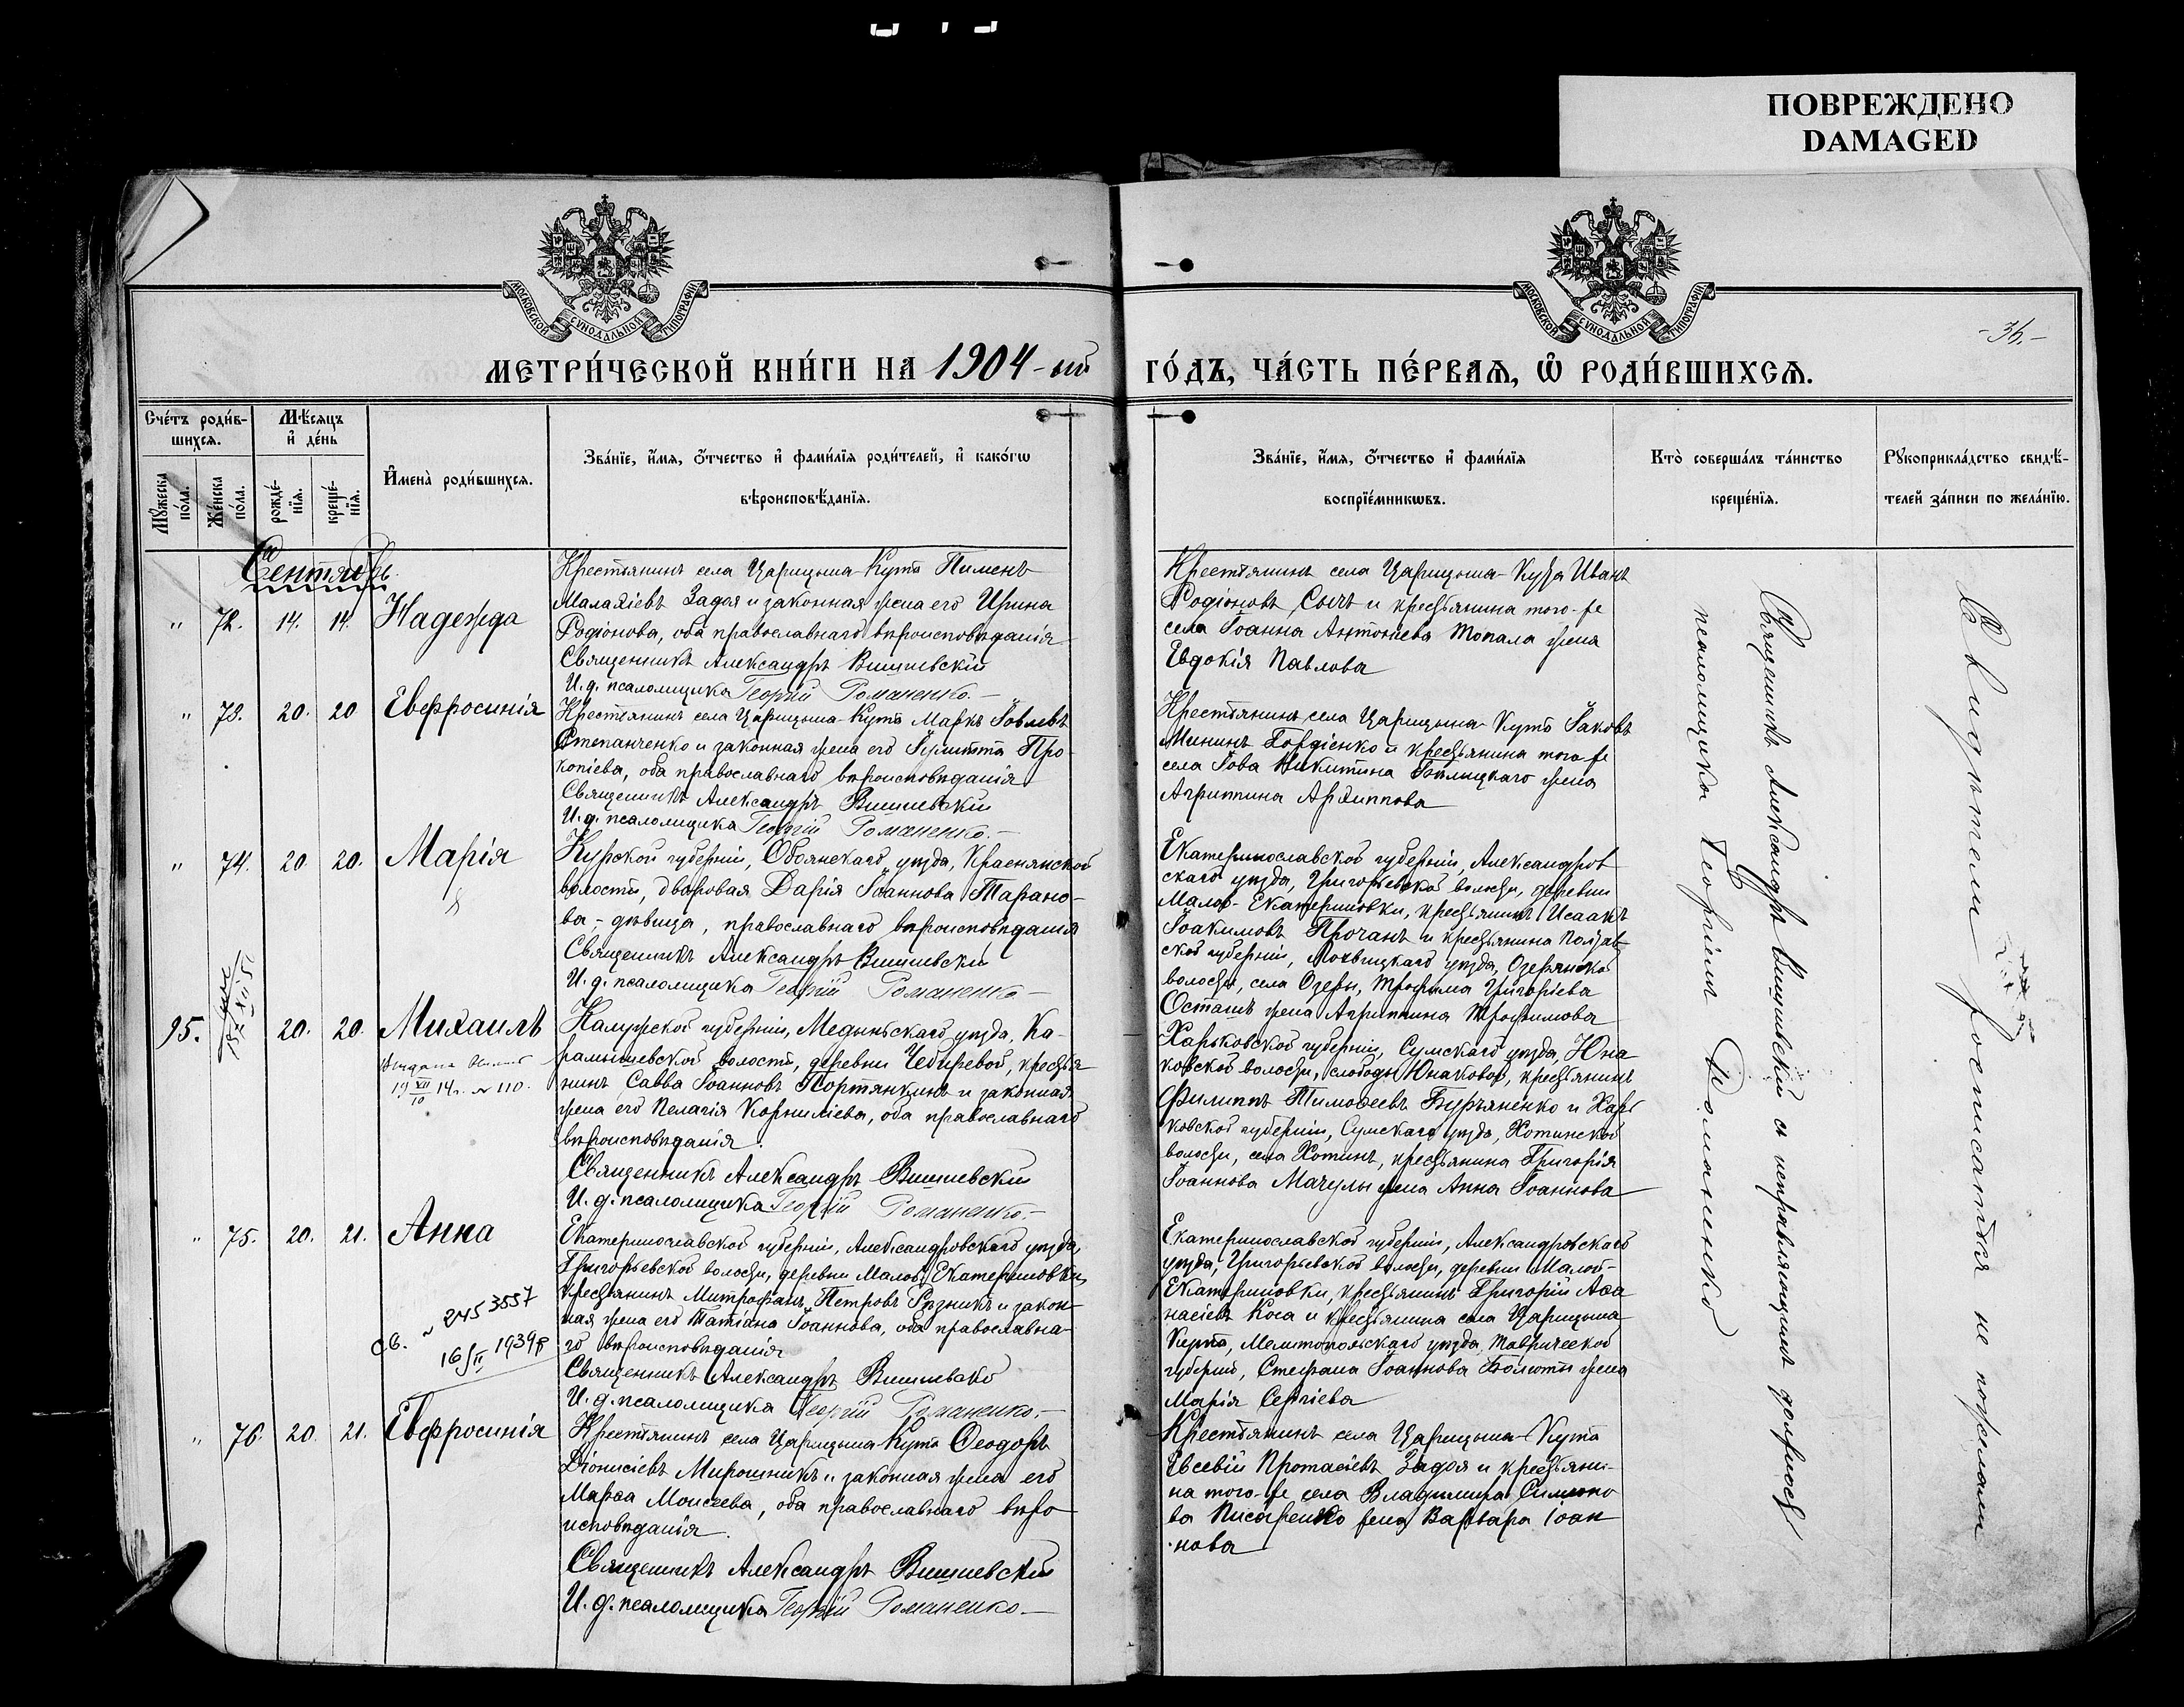 ПОВРЕЖДЕНО
DAMAGED
МОСКОВСКОЙ СѴНОДАЛЬНОЙ ТИПОГРАФІИ
МОСКОВСКОЙ СѴНОДАЛЬНОЙ ТИПОГРАФІИ
- 36. -
МЕТРИ́ЧЕСКОЙ КНИ́ГИ НА 1904-ый ГО́ДЪ, ЧА́СТЬ ПЕ́РВАѦ, Ѽ РОДИ́ВШИХСѦ.
Сче́тъ роди́в-
шихсѧ.
Мѣ́сѧцъ
и҆ де́нь
Мꙋжеска
по́ла.
Же́нска
по́ла.
рожде́-
нїѧ.
креще́-
нїѧ.
И҆мена̀ роди́вшихсѧ.
Зва́нїе, и҆́мѧ, ѻ҆́тчество и҆ фами́лїѧ роди́телей, и҆ како́гѡ
вѣроисповѣ́данїѧ.
Зва́нїе, и҆́мѧ, ѻ҆́тчество и҆ фами́лїѧ
воспрїе́мникѡвъ.
Кто̀ соверша́лъ та́инство
креще́нїѧ.
Рꙋкоприкла́дство свидѣ́-
телей за́писи по жела́нїю.
Сентябрь.
" 72. 14. 14. Надежда
Крестьянинъ села Царицына-Кута Пименъ
Малахіевъ Задоя и законная жена его Ирина
Родіонова, оба православнаго вѣроисповѣданія
Священникъ Александръ Вишневскій
И. д. псаломщика Георгій Романенко. -
Крестьянинъ села Царицына-Кута Иванъ
Родіоновъ Сычъ и крестьянина того-же
села Іоанна Антоніева Топала жена
Евдокія Павлова
" 73. 20. 20 Евфросинія
Крестьянинъ села Царицына-Кута Маркъ Іовлевъ
Степанченко и законная жена его Іулитта Про-
копіева, оба православнаго вѣроисповѣданія
Священникъ Александръ Вишневскій
И. д. псаломщика Георгій Романенко. -
Крестьянинъ села Царицына-Кута Іаковъ
Мининъ Гордіенко и крестьянина того-же
села Іова Никитина Бѣлицкаго жена
Агриппина Архиппова
" 74. 20 20. Марія
Курской губерніи, Обоянскаго уѣзда, Краснянской
волости, дворовая Дарія Іоаннова Тарано-
ва, - дѣвица, православнаго вѣроисповѣданія
Священникъ Александръ Вишневскій
И. д. псаломщика Георгій Романенко -
Екатеринославской губерніи, Александров
скаго уѣзда, Григорьевской волости, деревни
Мало-Екатериновки, крестьянинъ Исаакъ
Іоакимовъ Прочанъ и крестьянина Полтав-
ской губерніи, Лохвицкаго уѣзда, Озерянской
волости, села Озеры, Трофима Григоріева
Осташъ жена Агриппина Трофимова
95. 20. 20. Михаилъ
19 XII/10 14г. № 110.
Калужской губерніи, Медынскаго уѣзда, Ка-
рамышевской волости, деревни Чебиревой, крестья-
нинъ Савва Іоанновъ Портянкинъ и законная
жена его Пелагія Корниліева, оба православнаго
вѣроисповѣданія.
Священникъ Александръ Вишневскій
И. д. псаломщика Георгій Романенко -
Харьковской губерніи, Сумскаго уѣзда, Юна
ковской волости, слободы Юнаковой, крестьянинъ
Филиппъ Тимофеевъ Бурьяненко и Харь
ковской губерніи, Сумскаго уѣзда, Хотинской
волости, села Хотинъ, крестьянина Григорія
Іоаннова Мачулы жена Анна Іоаннова
" 75. 20. 21. Анна
св. № 2453557
16/II 1939г
Екатеринославской губерніи, Александровскаго уѣзда,
Григорьевской волости, деревни Малой-Екатериновки,
крестьянинъ Митрофанъ Петровъ Рѣзникъ и закон-
ная жена его Татіана Іоаннова, оба православна-
го вѣроисповѣданія
Священникъ Александръ Вишневскій
И. д. псаломщика Георгій Романенко. -
Екатеринославской губерніи, Александровскаго
уѣзда, Григорьевской волости, деревни Малой-
Екатериновки, крестьянинъ Григорій Афа
насіевъ Коса и крестьянина села Царицына-
Кута, Мелитопольскаго уѣзда, Таврической
губерніи, Стефана Іоаннова Болюты жена
Марія Сергіева
" 76. 20. 21. Евфросинія
Крестьянинъ села Царицына Кута Феодоръ
Діонисіевъ Мирошникъ и законная жена его
Марѳа Моисеева, оба православнаго вѣро
исповѣданія.
Священникъ Александръ Вишневскій
И. д. псаломщика Георгій Романенко -
Крестьянинъ села Царицына-Кута
Евсевій Протасіевъ Задоя и крестьяни-
на того-же села Владимира Симоно
ва Писаренко жена Варвара Іоан
нова
Священникъ Александръ Вишневскій съ исправляющимъ должность
псаломщика Георгіемъ Романенко
Свидѣтели росписаться не пожелали